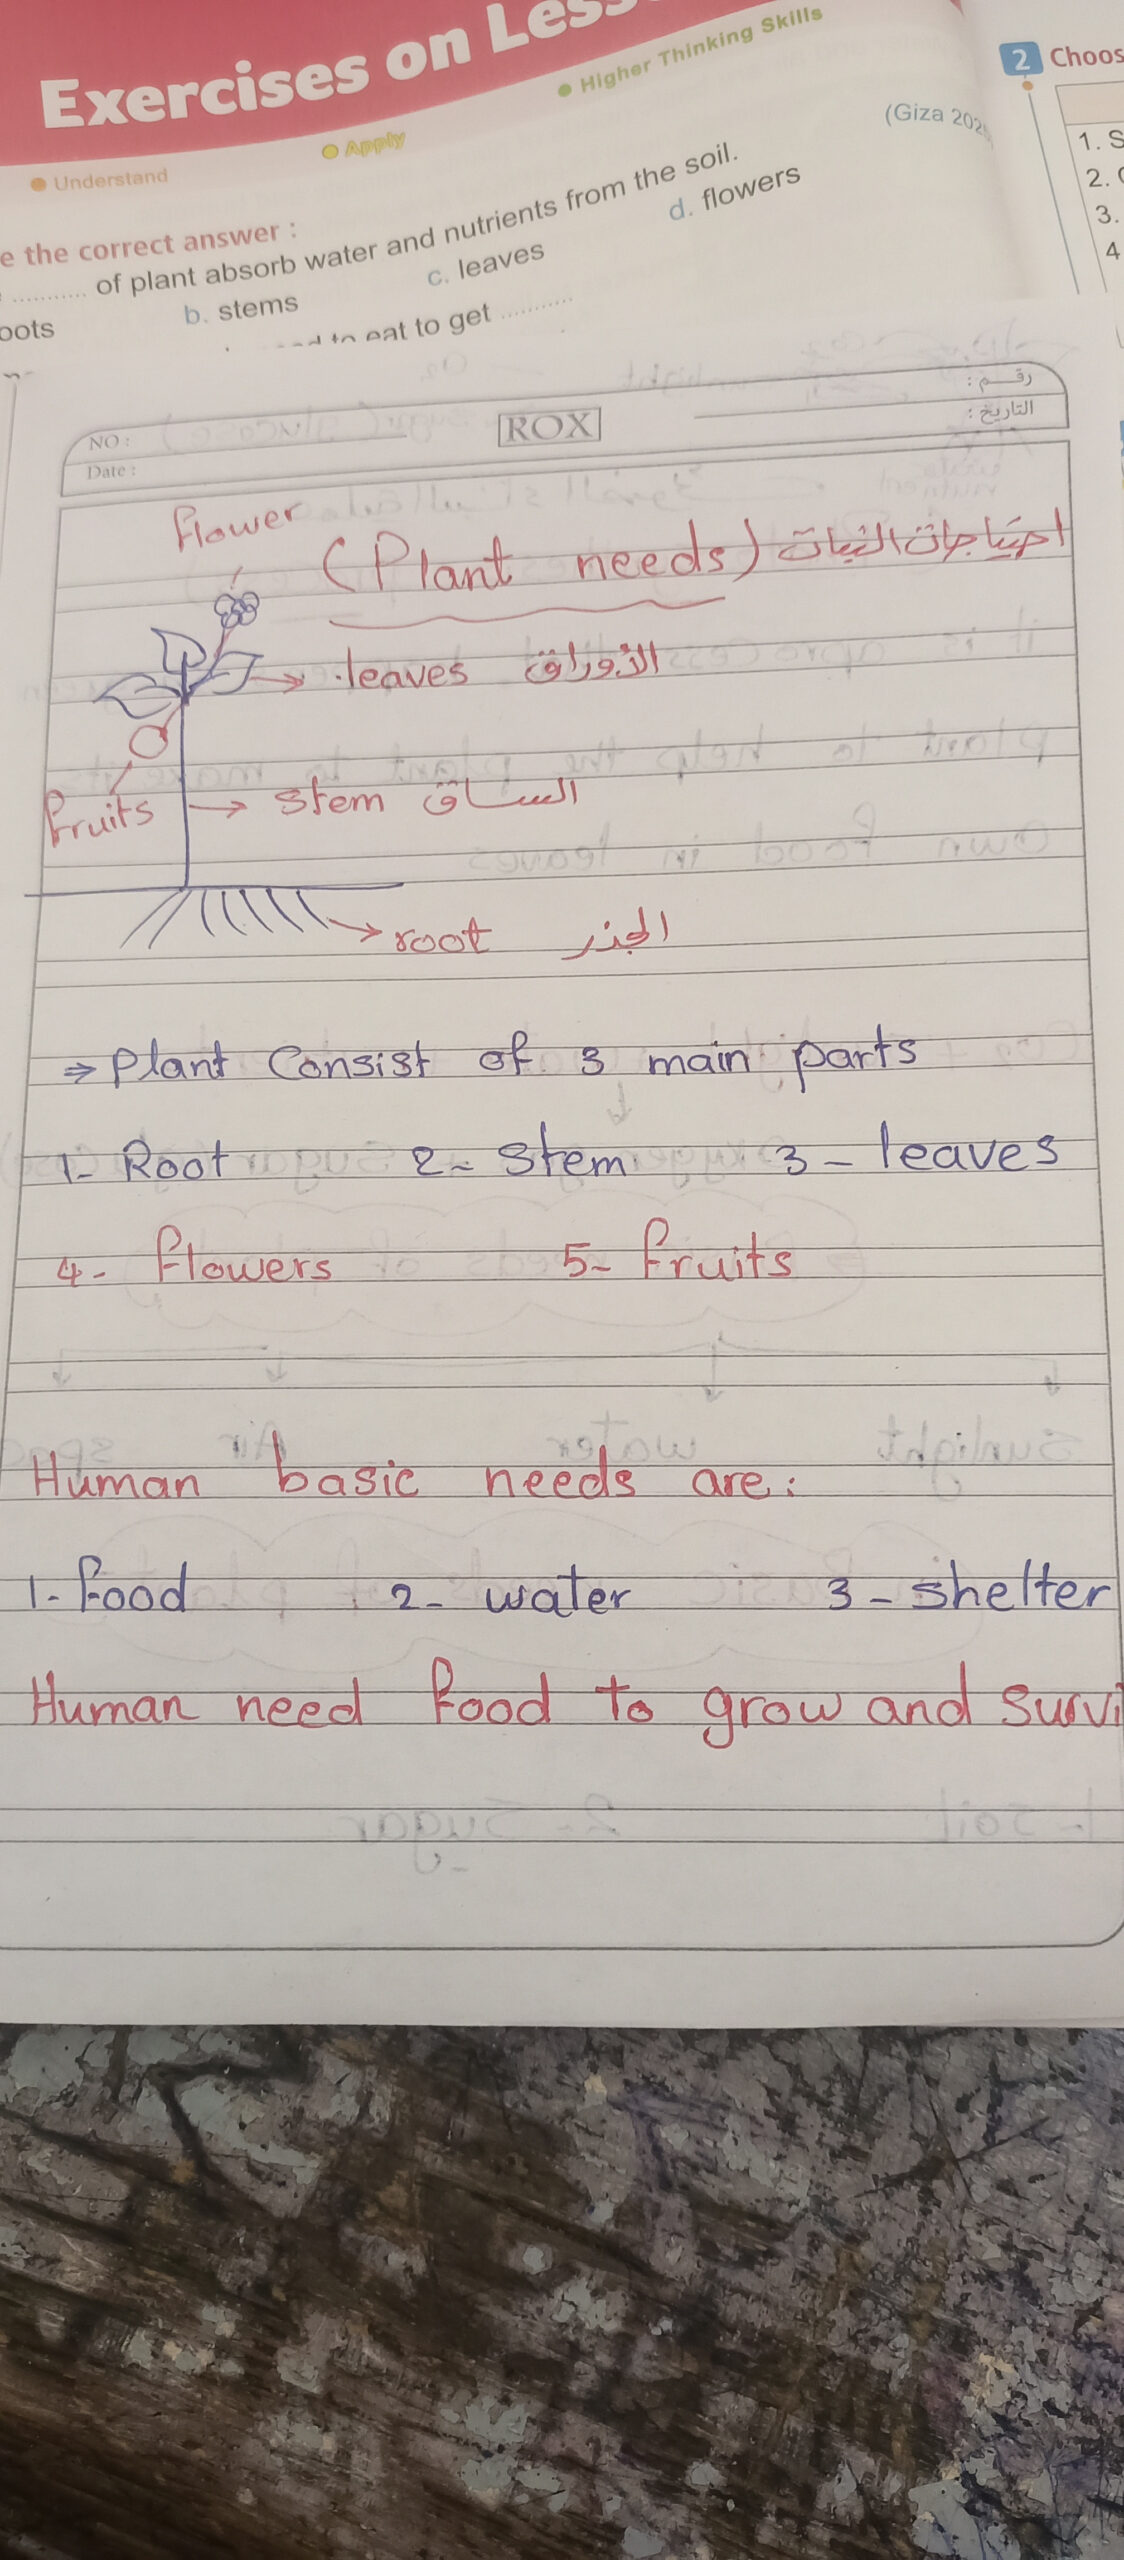 Exercises on Less
Understand
Apply
Higher Thinking Skills
(Giza 202
2 Choos
1. S
2.
3.
4
e the correct answer :
............ of plant absorb water and nutrients from the soil.
oots
b. stems
c. leaves
d. flowers
to eat to get ............
NO :
Date :
ROX
رقـــم :
التاريخ :
flower
(Plant needs) احتياجات النبات
leaves الأوراق
fruits
stem الساق
root الجذر
⇒ Plant Consist of 3 main parts
1- Root 2- Stem 3- leaves
4- flowers 5- fruits
Human basic needs are:
1- food 2- water 3- shelter
Human need food to grow and survi